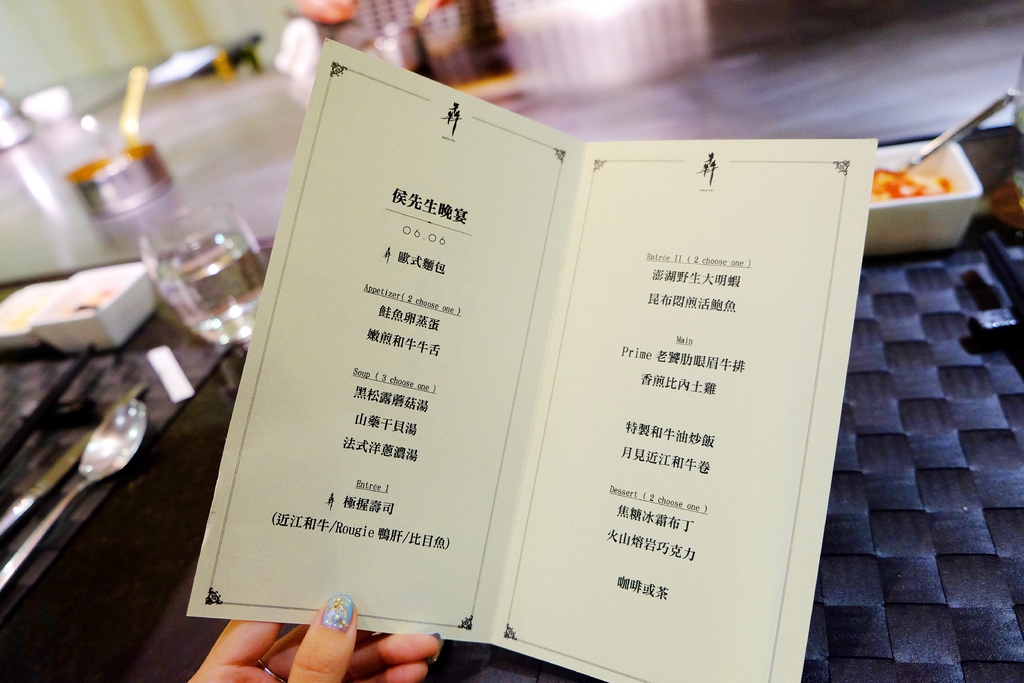 犇
侯先生晚宴
06.06
犇 歐式麵包
Appetizer( 2 choose one )
鮭魚卵蒸蛋
嫩煎和牛牛舌
Soup ( 3 choose one )
黑松露蘑菇湯
山藥干貝湯
法式洋蔥濃湯
Entrée I
犇 極握壽司
(近江和牛/Rougie 鴨肝/比目魚)
犇
Entrée II ( 2 choose one )
澎湖野生大明蝦
昆布悶煎活鮑魚
Main
Prime 老饕肋眼眉牛排
香煎比內土雞
特製和牛油炒飯
月見近江和牛卷
Dessert ( 2 choose one )
焦糖冰霜布丁
火山熔岩巧克力
咖啡或茶